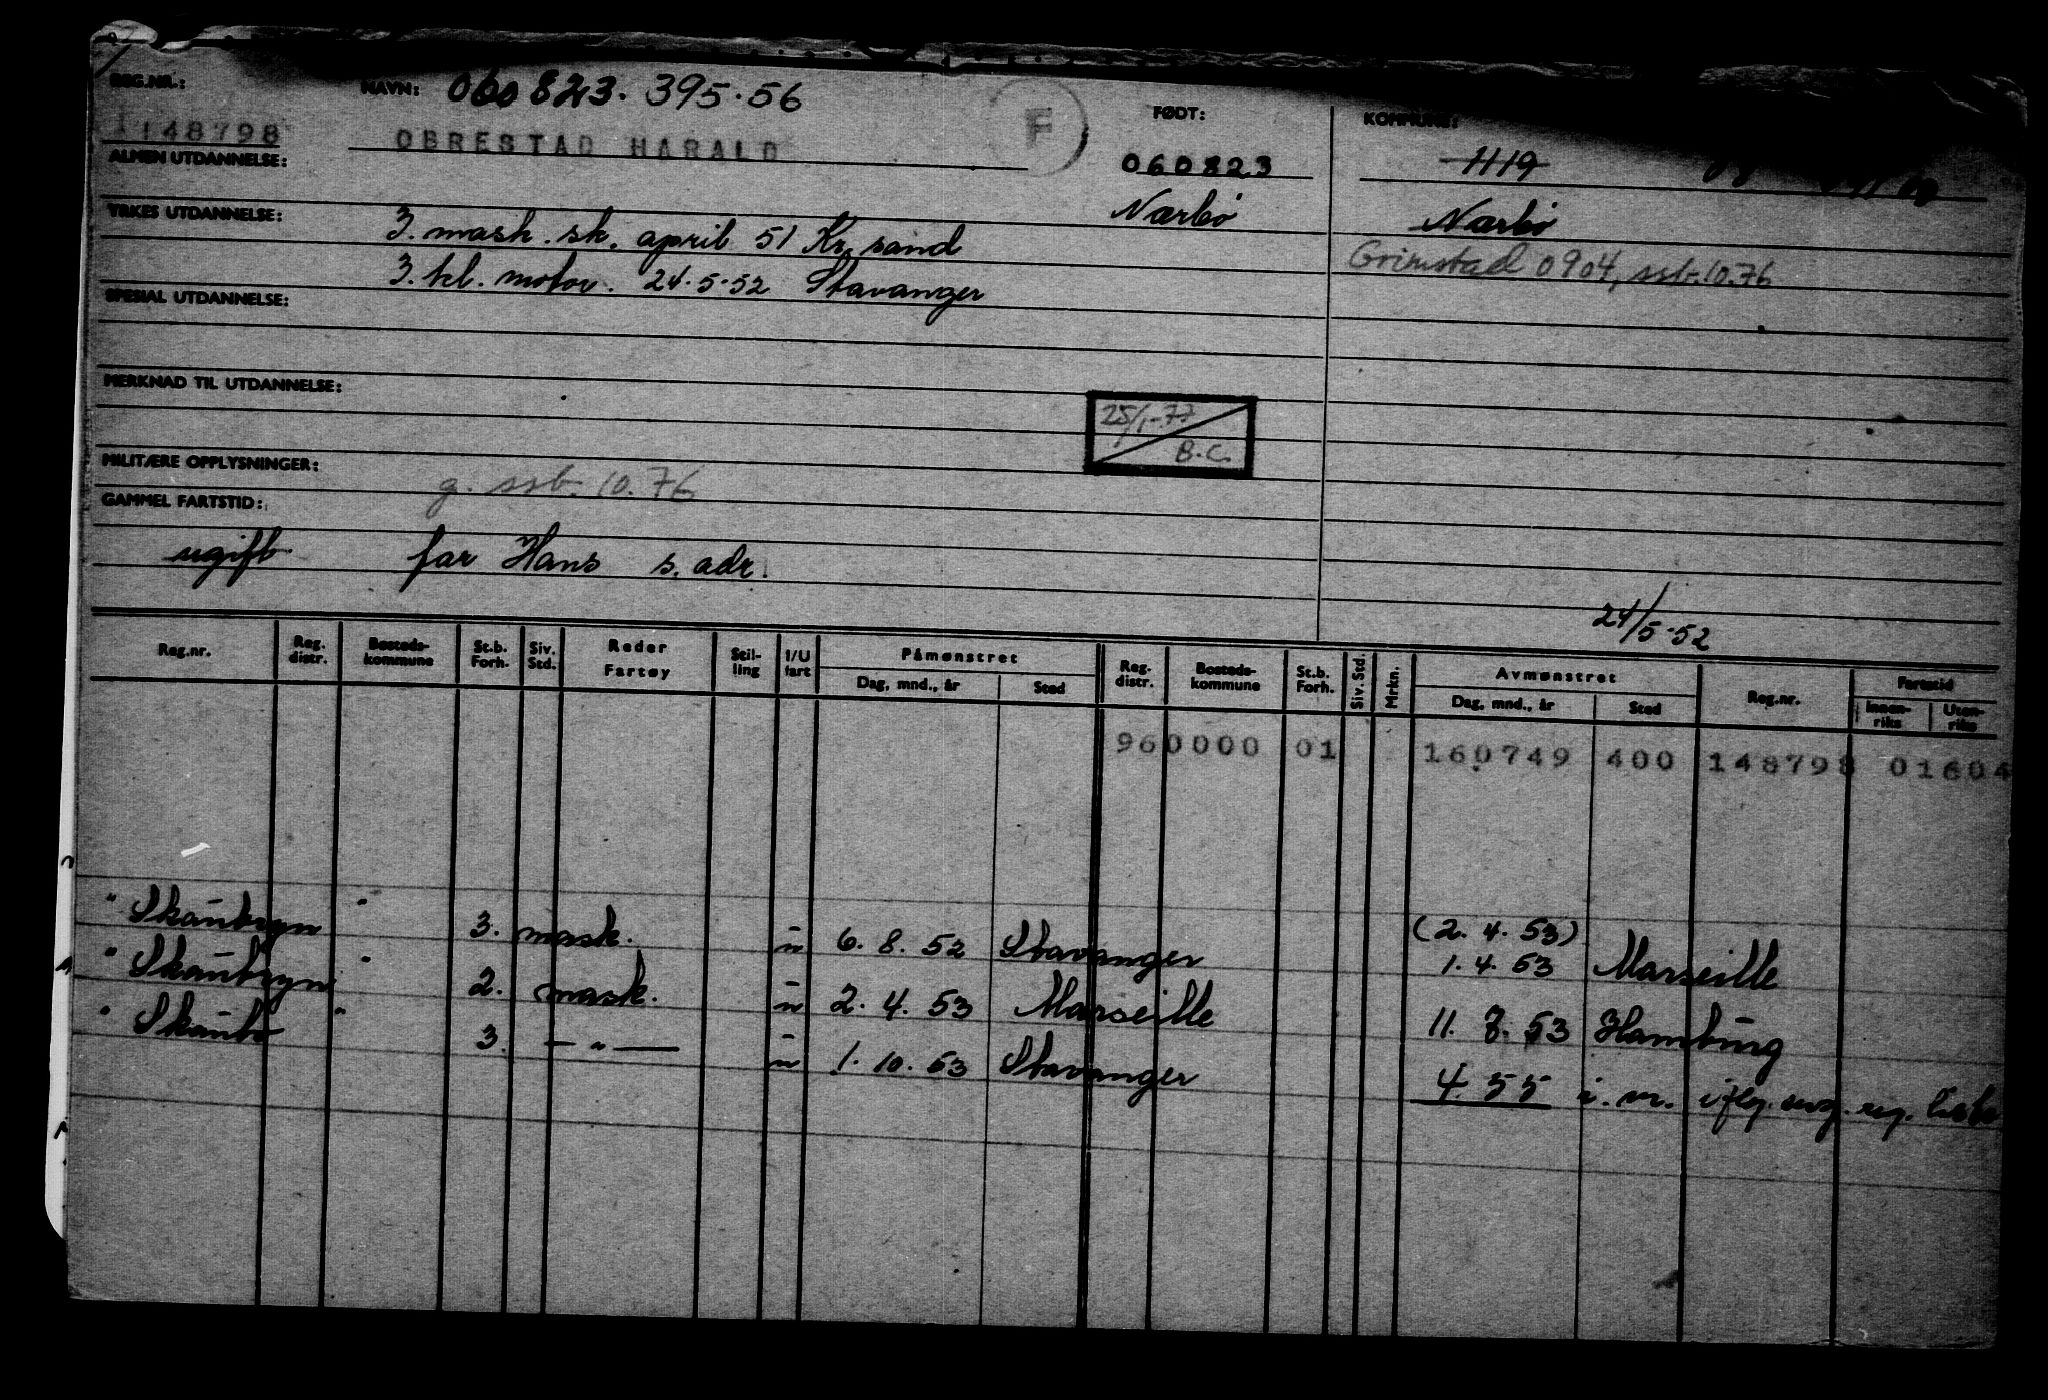 REG.NR.: NAVN: 060823. 395.56 FØDT: KOMMUNE:
148798 OBRESTAD HARALD F 060823 1119
ALMEN UTDANNELSE: Nærbø Nærbø
YRKES UTDANNELSE: 3. mask. sk. april 51 Kr. sand Grimstad 0904, ssb. 10.76
3. kl. motor. 24.5.52 Stavanger
SPESIAL UTDANNELSE:
MERKNAD TIL UTDANNELSE:
25/1-77
B.C.
MILITÆRE OPPLYSNINGER:
g. ssb. 10.76
GAMMEL FARTSTID:
ugift far Hans s. adr.
24/5-52
Reg.nr. Reg. distr. Bosteds-kommune St.b. Forh. Siv. Std. Reder Fartøy Stil-ling I/U fart Påmønstret Dag, mnd., år Sted Reg. distr. Bosteds-kommune St.b. Forh. Siv. Std. Mrkn. Avmønstret Dag, mnd., år Sted Reg.nr. Fartstid Innen-riks Uten-riks
960000 01 160749 400 148798 01604
(2. 4. 53)
" Skaubryn " 3. mask. u 6. 8. 52 Stavanger 1. 4. 53 Marseille
" Skaubryn " 2. mask. u 2. 4. 53 Marseille 11. 8. 53 Hamburg
" Skaubo " 3. — " — u 1. 10. 53 Stavanger 4. 55 i. m. iflg. reg. liste